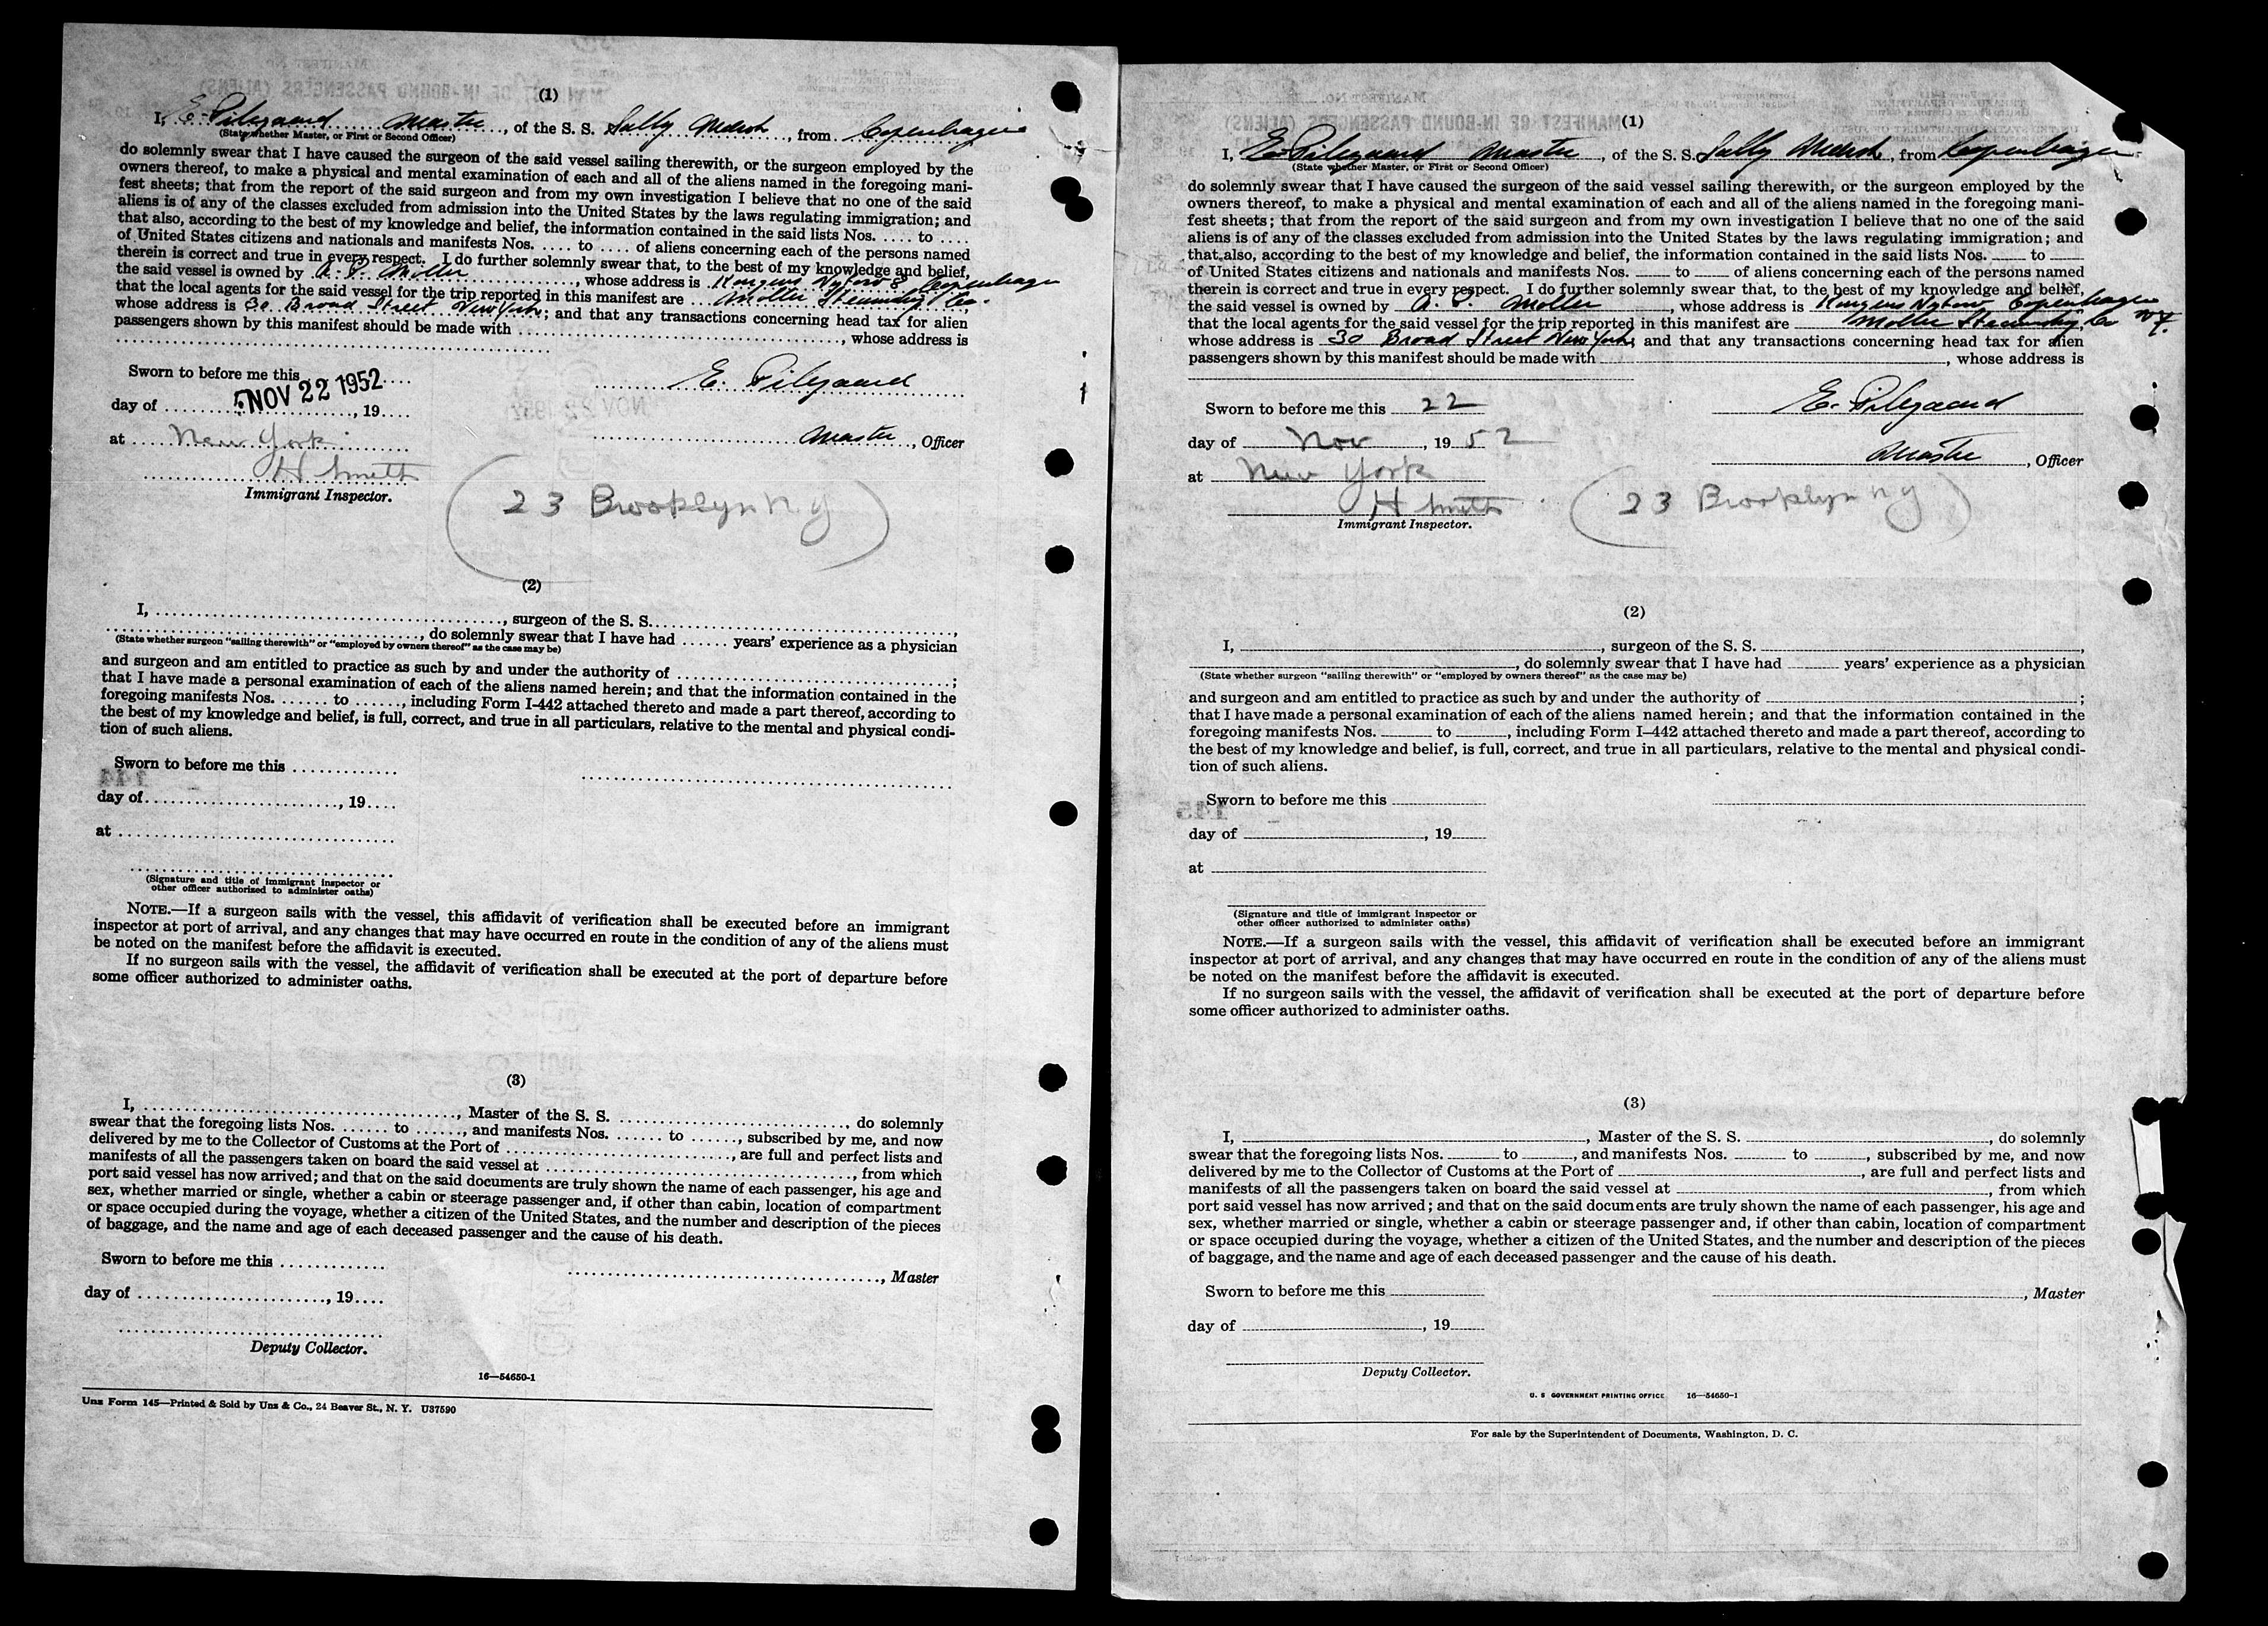 (1)
I, E. Pilegaard Master, of the S. S. Sally Mærsk, from Copenhagen
(State whether Master, or First or Second Officer)
do solemnly swear that I have caused the surgeon of the said vessel sailing therewith, or the surgeon employed by the
owners thereof, to make a physical and mental examination of each and all of the aliens named in the foregoing mani-
fest sheets; that from the report of the said surgeon and from my own investigation I believe that no one of the said
aliens is of any of the classes excluded from admission into the United States by the laws regulating immigration; and
that also, according to the best of my knowledge and belief, the information contained in the said lists Nos. .... to ....
of United States citizens and nationals and manifests Nos. .... to .... of aliens concerning each of the persons named
therein is correct and true in every respect. I do further solemnly swear that, to the best of my knowledge and belief,
the said vessel is owned by A. P. Moller, whose address is Kongens Nytorv 8 Copenhagen
that the local agents for the said vessel for the trip reported in this manifest are Moller Steamship Co.
whose address is 30 Broad Street New York; and that any transactions concerning head tax for alien
passengers shown by this manifest should be made with ...................., whose address is
Sworn to before me this
NOV 22 1952
E. Pilegaard
day of ...................., 19....
at New York
Master, Officer
H Smith
Immigrant Inspector.
(23 Brooklyn N.Y)
(2)
I, ...................., surgeon of the S. S. ....................,
...................., do solemnly swear that I have had ...... years' experience as a physician
(State whether surgeon "sailing therewith" or "employed by owners thereof" as the case may be)
and surgeon and am entitled to practice as such by and under the authority of ....................;
that I have made a personal examination of each of the aliens named herein; and that the information contained in the
foregoing manifests Nos. ...... to ......, including Form I-442 attached thereto and made a part thereof, according to
the best of my knowledge and belief, is full, correct, and true in all particulars, relative to the mental and physical condi-
tion of such aliens.
Sworn to before me this ............
day of ...................., 19....
at ....................
(Signature and title of immigrant inspector or
other officer authorized to administer oaths)
NOTE.—If a surgeon sails with the vessel, this affidavit of verification shall be executed before an immigrant
inspector at port of arrival, and any changes that may have occurred en route in the condition of any of the aliens must
be noted on the manifest before the affidavit is executed.
If no surgeon sails with the vessel, the affidavit of verification shall be executed at the port of departure before
some officer authorized to administer oaths.
(3)
I, ...................., Master of the S. S. ...................., do solemnly
swear that the foregoing lists Nos. ...... to ......, and manifests Nos. ...... to ......, subscribed by me, and now
delivered by me to the Collector of Customs at the Port of ...................., are full and perfect lists and
manifests of all the passengers taken on board the said vessel at ...................., from which
port said vessel has now arrived; and that on the said documents are truly shown the name of each passenger, his age and
sex, whether married or single, whether a cabin or steerage passenger and, if other than cabin, location of compartment
or space occupied during the voyage, whether a citizen of the United States, and the number and description of the pieces
of baggage, and the name and age of each deceased passenger and the cause of his death.
Sworn to before me this ............
...................., Master
day of ...................., 19....
Deputy Collector.
16—54650-1
Uns Form 145—Printed & Sold by Uns & Co., 24 Beaver St., N. Y. U37590
(1)
I, E. Pilegaard Master, of the S. S. Sally Mærsk, from Copenhagen
(State whether Master, or First or Second Officer)
do solemnly swear that I have caused the surgeon of the said vessel sailing therewith, or the surgeon employed by the
owners thereof, to make a physical and mental examination of each and all of the aliens named in the foregoing mani-
fest sheets; that from the report of the said surgeon and from my own investigation I believe that no one of the said
aliens is of any of the classes excluded from admission into the United States by the laws regulating immigration; and
that also, according to the best of my knowledge and belief, the information contained in the said lists Nos. ____ to ____
of United States citizens and nationals and manifests Nos. ____ to ____ of aliens concerning each of the persons named
therein is correct and true in every respect. I do further solemnly swear that, to the best of my knowledge and belief,
the said vessel is owned by A. P. Moller, whose address is Kongens Nytorv Copenhagen
that the local agents for the said vessel for the trip reported in this manifest are Moller Steamship Co NY.
whose address is 30 Broad Street New York, and that any transactions concerning head tax for alien
passengers shown by this manifest should be made with ____________, whose address is
Sworn to before me this 22
E. Pilegaard
day of Nov, 1952
Master, Officer
at New York
H Smith
Immigrant Inspector.
(23 Brooklyn NY)
(2)
I, ____________, surgeon of the S. S. ____________,
____________, do solemnly swear that I have had ____ years' experience as a physician
(State whether surgeon "sailing therewith" or "employed by owners thereof" as the case may be)
and surgeon and am entitled to practice as such by and under the authority of ____________;
that I have made a personal examination of each of the aliens named herein; and that the information contained in the
foregoing manifests Nos. ____ to ____, including Form I-442 attached thereto and made a part thereof, according to
the best of my knowledge and belief, is full, correct, and true in all particulars, relative to the mental and physical condi-
tion of such aliens.
Sworn to before me this ____
day of ____________, 19____
at ____________
(Signature and title of immigrant inspector or
other officer authorized to administer oaths)
NOTE.—If a surgeon sails with the vessel, this affidavit of verification shall be executed before an immigrant
inspector at port of arrival, and any changes that may have occurred en route in the condition of any of the aliens must
be noted on the manifest before the affidavit is executed.
If no surgeon sails with the vessel, the affidavit of verification shall be executed at the port of departure before
some officer authorized to administer oaths.
(3)
I, ____________, Master of the S. S. ____________, do solemnly
swear that the foregoing lists Nos. ____ to ____, and manifests Nos. ____ to ____, subscribed by me, and now
delivered by me to the Collector of Customs at the Port of ____________, are full and perfect lists and
manifests of all the passengers taken on board the said vessel at ____________, from which
port said vessel has now arrived; and that on the said documents are truly shown the name of each passenger, his age and
sex, whether married or single, whether a cabin or steerage passenger and, if other than cabin, location of compartment
or space occupied during the voyage, whether a citizen of the United States, and the number and description of the pieces
of baggage, and the name and age of each deceased passenger and the cause of his death.
Sworn to before me this ____
____________, Master
day of ____________, 19____
Deputy Collector.
U. S GOVERNMENT PRINTING OFFICE 16—54650-1
For sale by the Superintendent of Documents, Washington, D. C.